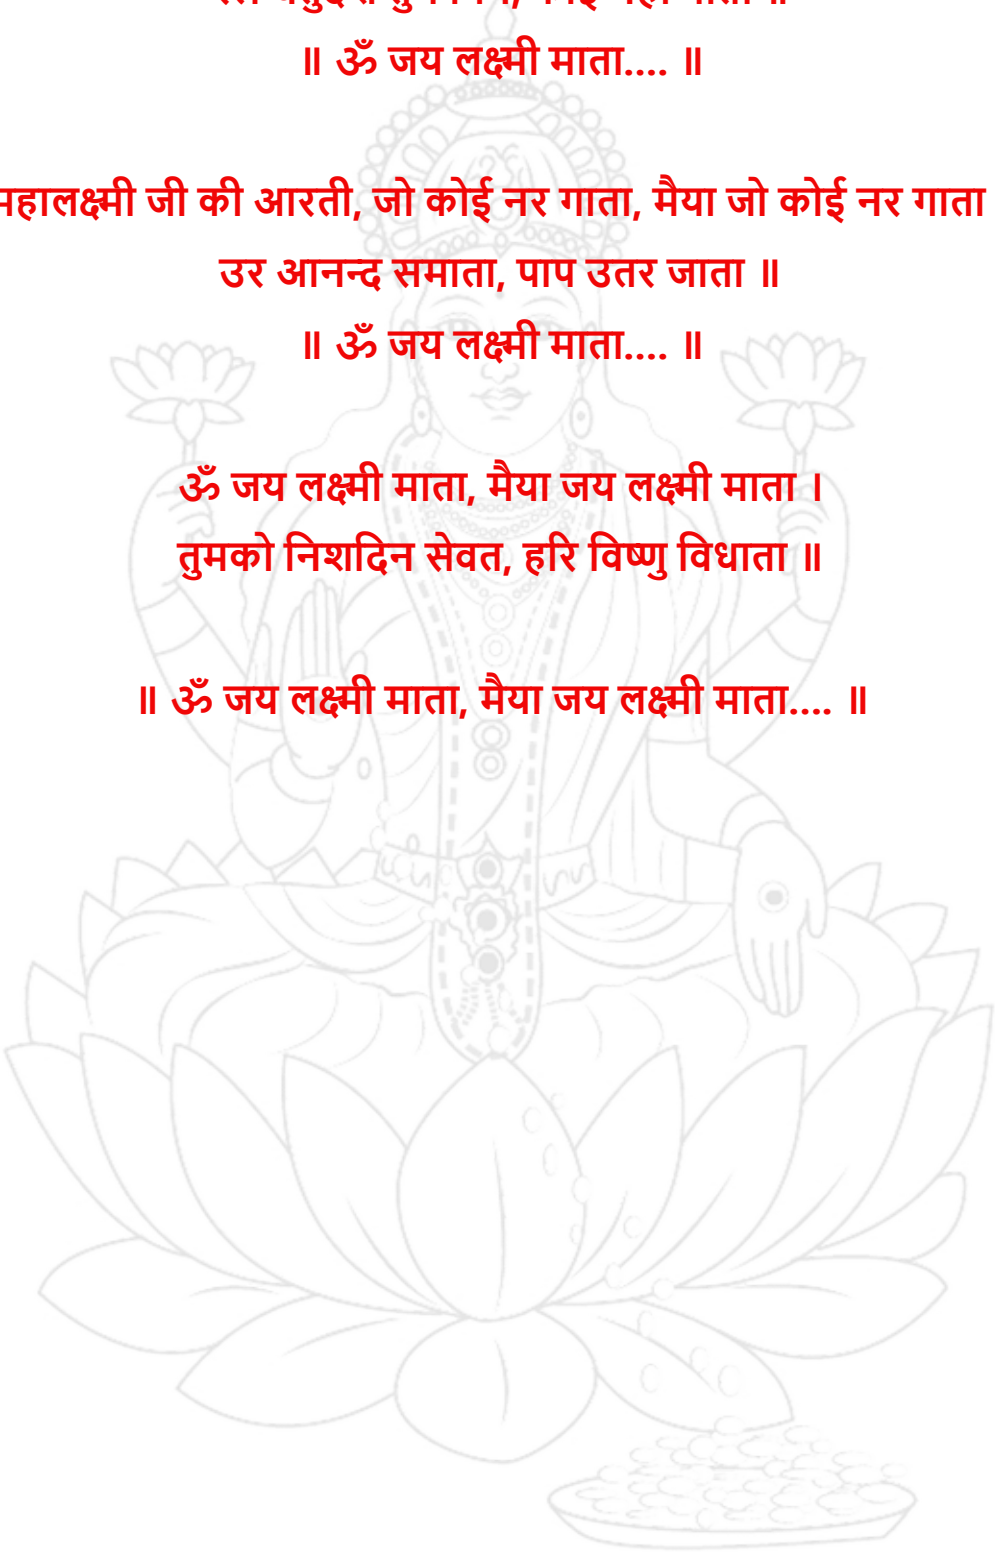 ॥ ॐ जय लक्ष्मी माता.... ॥
महालक्ष्मी जी की आरती, जो कोई नर गाता, मैया जो कोई नर गाता
उर आनन्द समाता, पाप उतर जाता ॥
॥ ॐ जय लक्ष्मी माता.... ॥
ॐ जय लक्ष्मी माता, मैया जय लक्ष्मी माता ।
तुमको निशदिन सेवत, हरि विष्णु विधाता ॥
॥ ॐ जय लक्ष्मी माता, मैया जय लक्ष्मी माता.... ॥